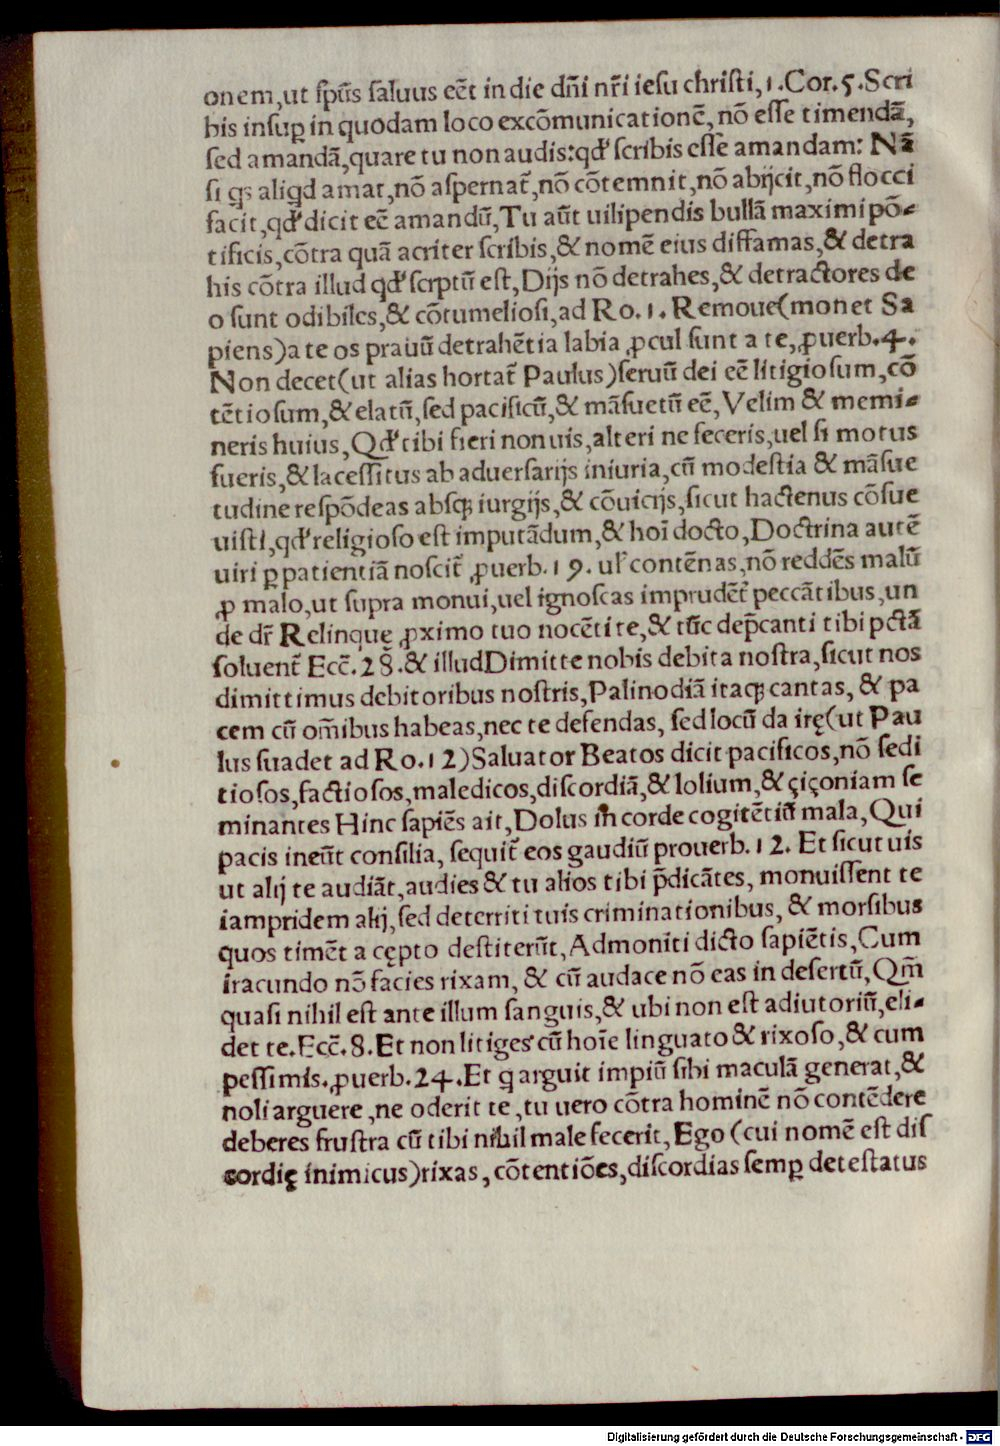 onem,ut sp̄us saluus eēt in die dn̄i nr̄i iesu christi,1.Cor.5.Scri
bis insuꝑ in quodam loco excōmunicationē,nō esse timendā,
sed amandā,quare tu non audis:qđ scribis esse amandam: Nā
si qs aliqd amat,nō aspernat᷑,nō cōtemnit,nō abijcit,nō flocci
facit,qđ dicit eē amandū,Tu aūt uilipendis bullā maximi pō-
tificis,cōtra quā acriter scribis,& nomē eius diffamas,& detra
his cōtra illud qđ scrptū est,Dijs nō detrahes,& detractores de
o sunt odibiles,& cōtumeliosi,ad Ro.1.Remoue(monet Sa
piens)a te os prauū detrahētia labia ꝓcul sunt a te,ꝓuerb.4.
Non decet(ut alias hortat᷑ Paulus)seruū dei eē litigiosum,cō
tētiosum,& elatū,sed pacificū,& māsuetū eē,Velim & memi-
neris huius,Qđ tibi fieri non uis,alteri ne feceris,uel si motus
fueris,& lacessitus ab aduersarijs iniuria,cū modestia & māsue
tudine respōdeas absqꝫ iurgijs,& cōuicijs,sicut hactenus cōsue
uisti,qđ religioso est imputādum,& hoī docto,Doctrina autē
uiri ꝑ patientiā noscit᷑ ꝓuerb.19.ul̓ contēnas,nō reddēs malū
ꝓ malo,ut supra monui,uel ignoscas imprudēt᷑ peccātibus,un
de dr̄ Relinque ꝓximo tuo nocēti te,& tūc dep̄canti tibi pctā
soluent᷑ Ecc̄.28.& illud Dimitte nobis debita nostra,sicut nos
dimittimus debitoribus nostris,Palinodiā itaqꝫ cantas,& pa
cem cū om̄ibus habeas,nec te defendas, sed locū da irę(ut Pau
lus suadet ad Ro.12)Saluator Beatos dicit pacificos,nō sedi
tiosos,factiosos,maledicos,discordiā,& lolium,& çiçoniam se
minantes Hinc sapiēs ait,Dolus in corde cogitētiū mala,Qui
pacis ineūt consilia, sequit᷑ eos gaudiū prouerb.12. Et sicut uis
ut alij te audiāt,audies & tu alios tibi p̄dicātes, monuissent te
iampridem alij,sed deterriti tuis criminationibus,& morsibus
quos timēt a cępto destiterūt,Admoniti dicto sapiētis,Cum
iracundo nō facies rixam, & cū audace nō eas in desertū,Qm̄
quasi nihil est ante illum sanguis,& ubi non est adiutoriū,eli-
det te.Ecc̄.8.Et non litiges cū hoīe linguato & rixoso,& cum
pessimis.ꝓuerb.24.Et q arguit impiū sibi maculā generat,&
noli arguere,ne oderit te,tu uero cōtra hominē nō contēdere
deberes frustra cū tibi nihil male fecerit,Ego (cui nomē est dis
cordię inimicus)rixas, cōtentiōes,discordias semꝑ detestatus
Digitalisierung gefördert durch die Deutsche Forschungsgemeinschaft - DFG